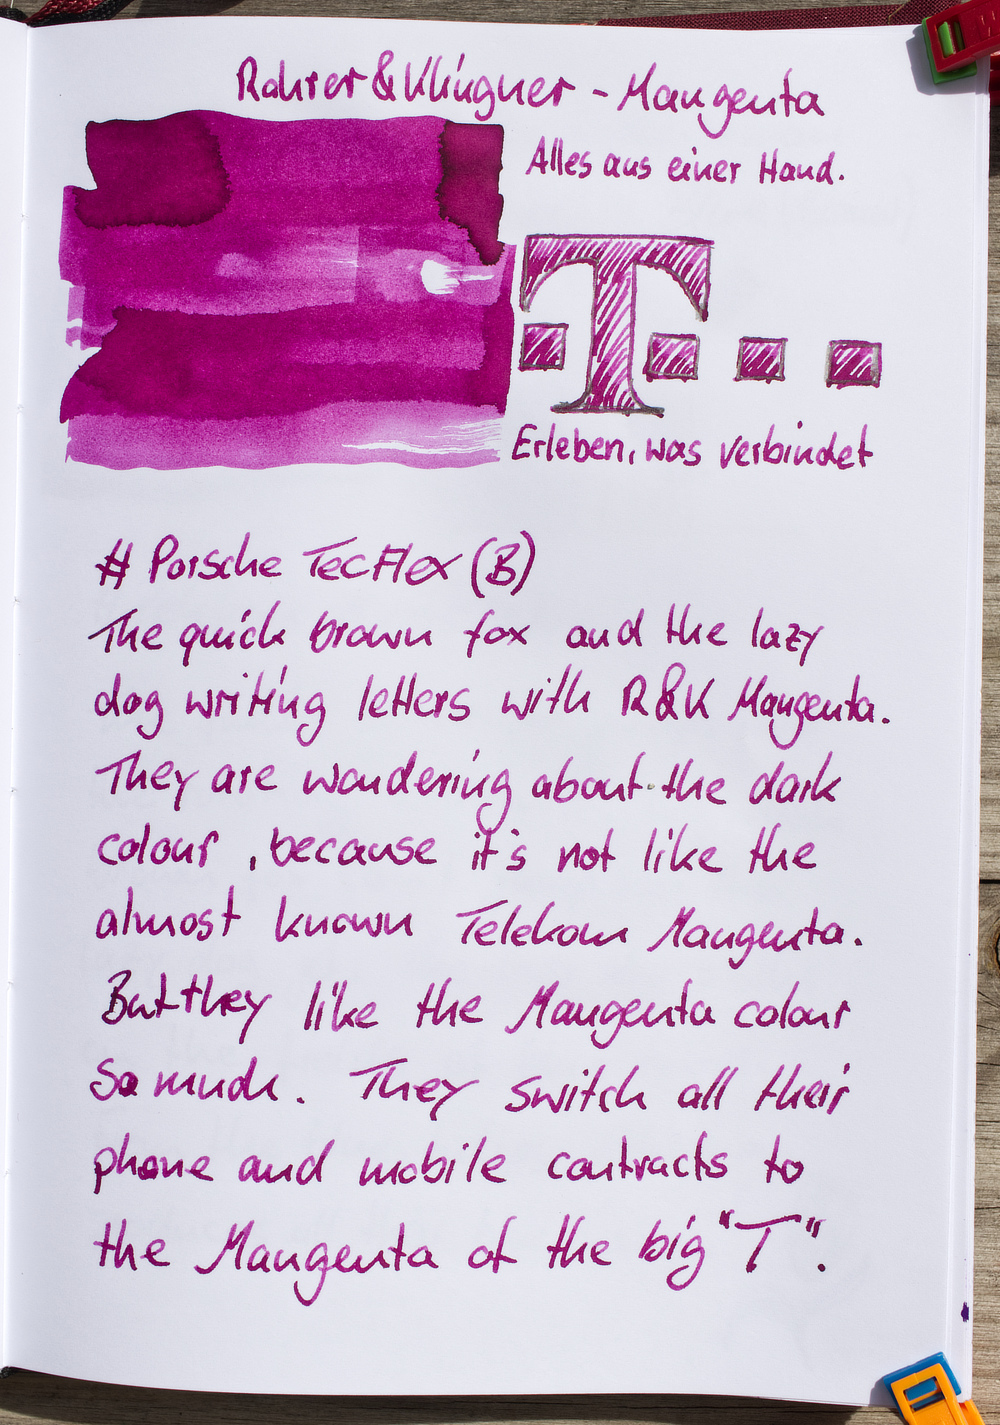 Rohrer & Klingner - Mangenta
Alles aus einer Hand.
T
Erleben, was verbindet
# Porsche TecFlex (B)
The quick brown fox and the lazy
dog writing letters with R&K Mangenta.
They are wondering about the dark
colour, because it's not like the
almost known Telekom Mangenta.
But they like the Mangenta colour
so much. They switch all their
phone and mobile contracts to
the Mangenta of the big "T".